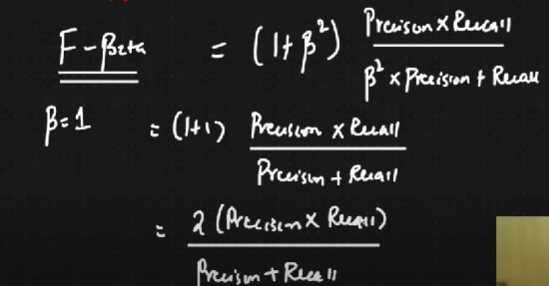 F-Beta = (1+β²) Precision × Recall
β² × Precision + Recall
β=1 = (1+1) Precision × Recall
Precision + Recall
= 2 (Precision × Recall)
Precision + Recall